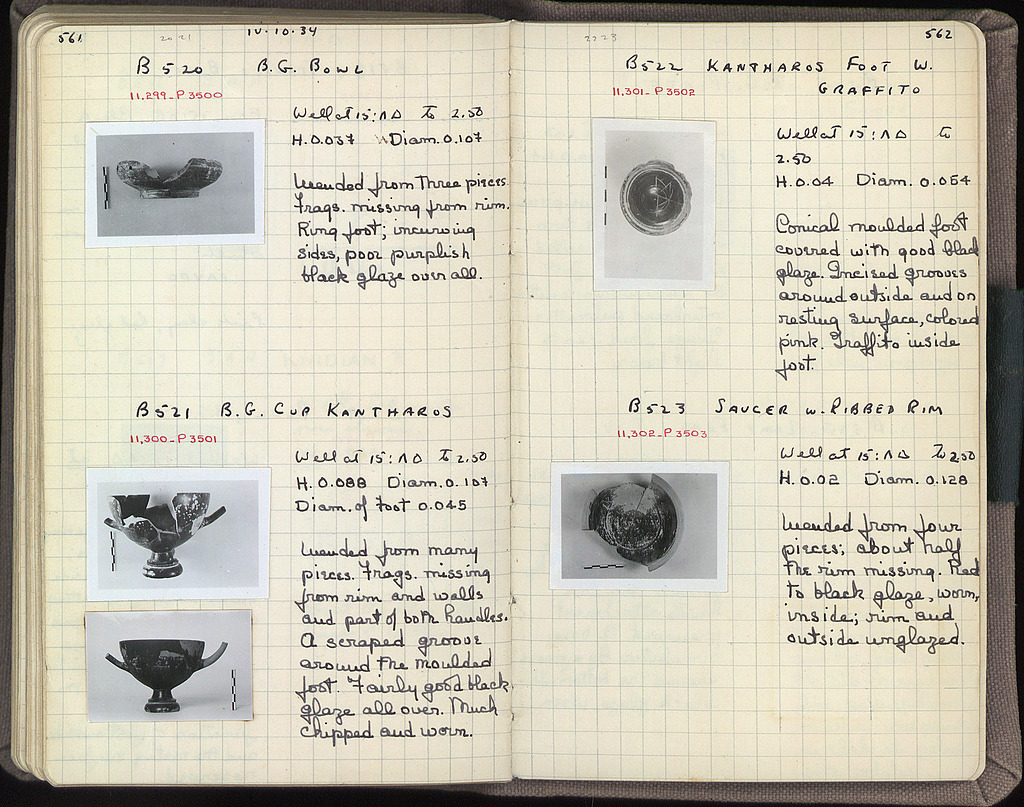 561
20 21
IV.10.34
B 520 B.G. BOWL
11,299-P 3500
Well at 15:ΛΔ to 2.50
H. 0.037 Diam. 0.107
Mended from three pieces.
Frags. missing from rim.
Ring foot; incurving
sides, poor purplish
black glaze over all.
B 521 B.G. CUP KANTHAROS
11,300-P 3501
Well at 15:ΛΔ to 2.50
H. 0.088 Diam. 0.107
Diam. of foot 0.045
Mended from many
pieces. Frags. missing
from rim and walls
and part of both handles.
A scraped groove
around the moulded
foot. Fairly good black
glaze all over. Much
chipped and worn.
22 23
562
B522 KANTHAROS FOOT W.
GRAFFITO
11,301-P 3502
Well at 15:ΛΔ to
2.50
H. 0.04 Diam. 0.054
Conical moulded foot
covered with good black
glaze. Incised grooves
around outside and on
resting surface, colored
pink. Graffito inside
foot.
B523 SAUCER W. RIBBED RIM
11,302-P 3503
Well at 15:ΛΔ to 2.50
H. 0.02 Diam. 0.128
Mended from four
pieces; about half
the rim missing. Red
to black glaze, worn,
inside; rim and
outside unglazed.